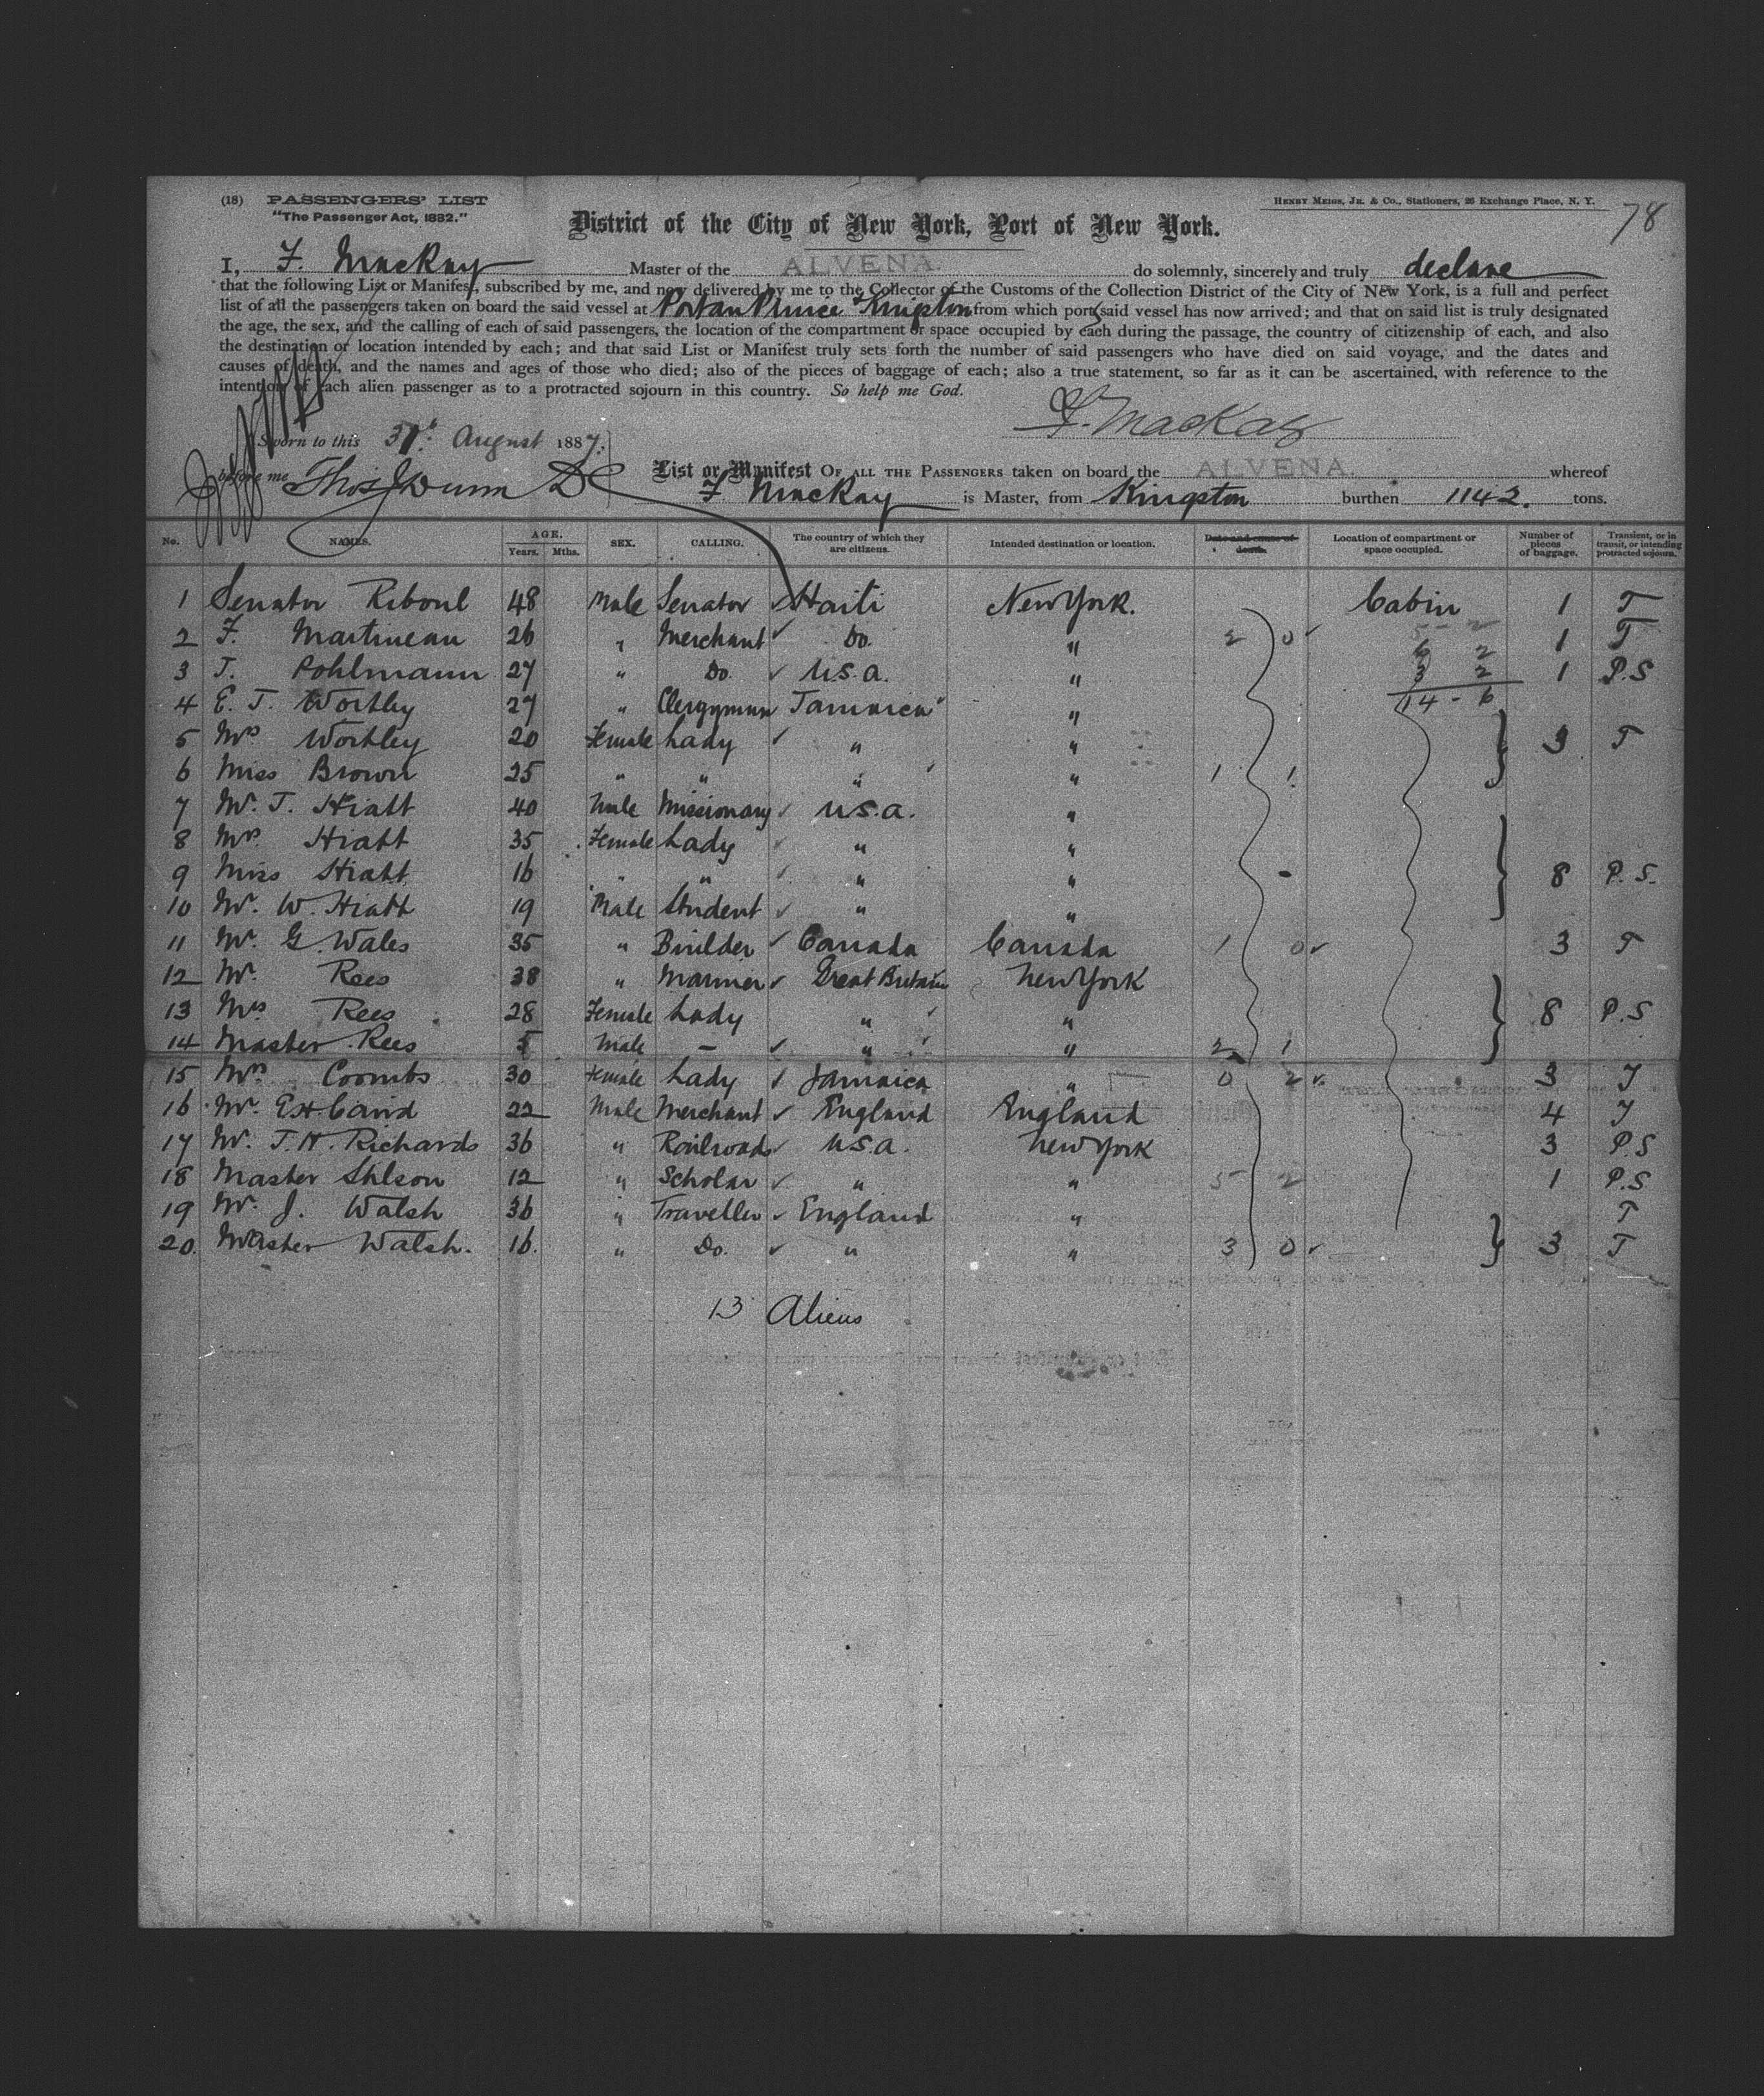 (18) PASSENGERS' LIST
"The Passenger Act, 1882."
HENRY MEIGS, JR. & CO., Stationers, 26 Exchange Place, N. Y.
78
District of the City of New York, Port of New York.
I, F. Mackay Master of the ALVENA do solemnly, sincerely and truly declare
that the following List or Manifest, subscribed by me, and now delivered by me to the Collector of the Customs of the Collection District of the City of New York, is a full and perfect
list of all the passengers taken on board the said vessel at Port au Prince & Kingston from which ports said vessel has now arrived; and that on said list is truly designated
the age, the sex, and the calling of each of said passengers, the location of the compartment or space occupied by each during the passage, the country of citizenship of each, and also
the destination or location intended by each; and that said List or Manifest truly sets forth the number of said passengers who have died on said voyage, and the dates and
causes of death, and the names and ages of those who died; also of the pieces of baggage of each; also a true statement, so far as it can be ascertained, with reference to the
intention of each alien passenger as to a protracted sojourn in this country. So help me God.
F. Mackay
Sworn to this 31st August 1887.
before me Thos J Dunn D C
List or Manifest OF ALL THE PASSENGERS taken on board the ALVENA whereof
F Mackay is Master, from Kingston burthen 1142. tons.
No. NAMES. AGE. Years. Mths. SEX. CALLING. The country of which they are citizens. Intended destination or location. Date and cause of death. Location of compartment or space occupied. Number of pieces of baggage. Transient, or in transit, or intending protracted sojourn.
1 Senator Riboul 48 Male Senator Haiti New York. Cabin 1 T
2 F. Martineau 26 " Merchant Do. " 2 0 5 - 2 1 T
6 2
3 J. Pohlmann 27 " Do. U.S.A. " 3 2 1 P.S
14 - 6
4 E. J. Wortley 27 " Clergyman Jamaica "
5 Mrs Wortley 20 Female Lady " " 3 T
6 Miss Brown 25 " " " " 1 1
7 Mr. J. Hiatt 40 Male Missionary U.S.A. "
8 Mrs Hiatt 35 Female Lady " "
9 Miss Hiatt 16 " " " " - 8 P.S.
10 Mr. W. Hiatt 19 Male Student " "
11 Mr. G. Wales 35 " Builder Canada Canada 1 0 3 T
12 Mr. Rees 38 " Mariner Great Britain New York
13 Mrs Rees 28 Female Lady " " 8 P.S
14 Master Rees 5 Male - " " 2 1
15 Mrs Coombs 30 Female Lady Jamaica " 0 2 3 T
16 Mr. E H Caird 22 Male Merchant England England 4 T
17 Mr. J. H. Richards 36 " Railroads U.S.A. New York 3 P.S
18 Master 12 " Scholar " " 5 2 1 P.S
19 Mr. J. Walsh 36 " Traveller England " T
20. Master Walsh. 16. " Do. " " 3 0 3 T
13 Aliens